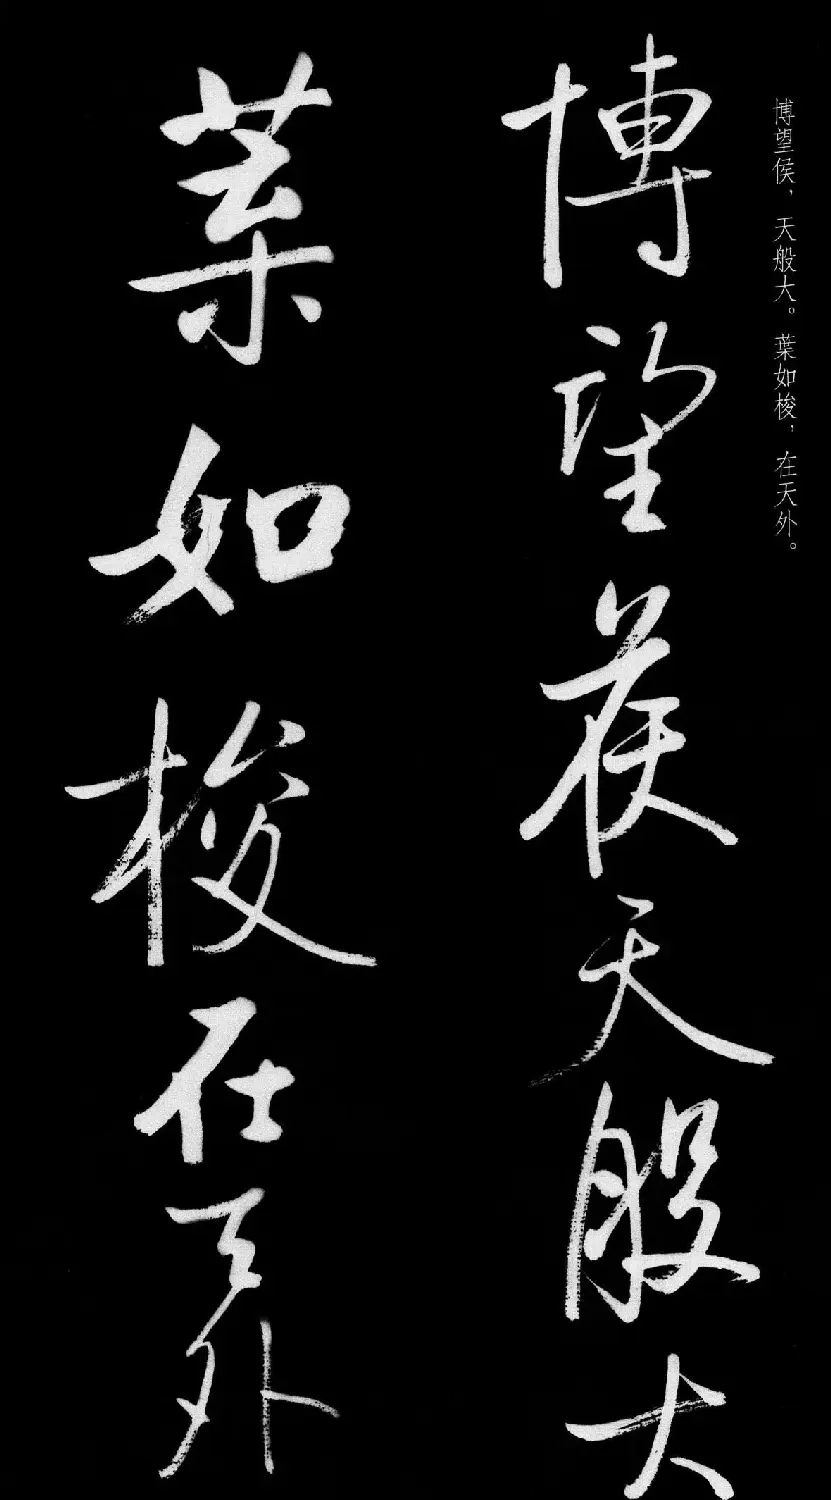 博望侯，天般大。葉如梭，在天外。
博望侯天般大
葉如梭在天外